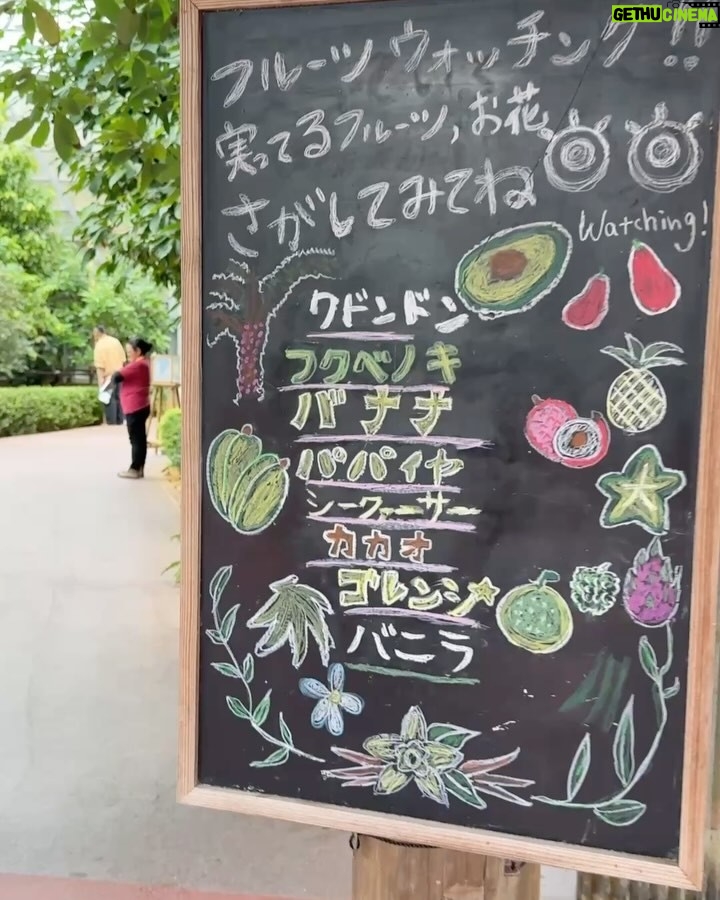 GETHUCINEMA
フルーツウォッチング!!
実ってるフルーツ,お花、
さがしてみてね
Watching!
クドンドン
フクベノキ
バナナ
パパイヤ
シークァーサー
カカオ
ゴレンシ
バニラ